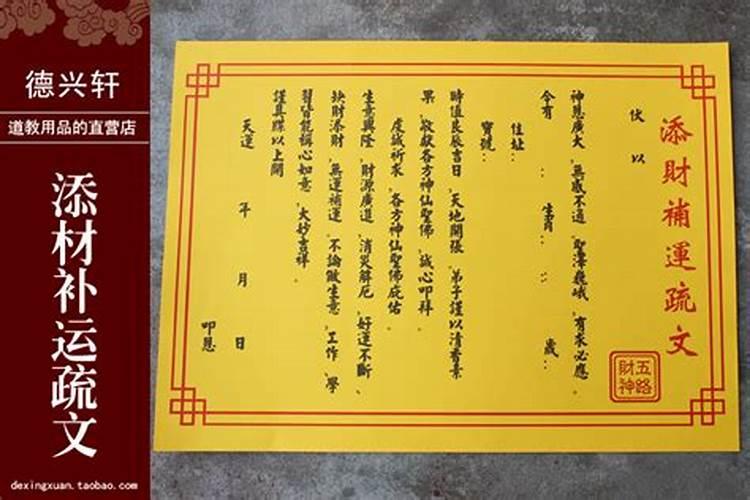 德兴轩
道教用品的直营店
添材补运疏文
dexingxuan.taobao.com
添財補運疏文
五路
財神
伏以
神恩廣大、無感不通、聖澤巍峨、有求必應。
今有：生肖：：歲：
住址：
寶號：
時值良辰吉日、天地開張、弟子謹以清香素
果、敬獻各方神仙聖佛、誠心叩拜。
虔誠祈求、各方神仙聖佛庇佑。
生意興隆、財源廣進、消災解厄、好運不斷、
缺財添財、無運補運、不論做生意、工作、學
習皆能稱心如意、大妙吉祥。
謹具疏以上聞
天運 年 月 日
叩恩